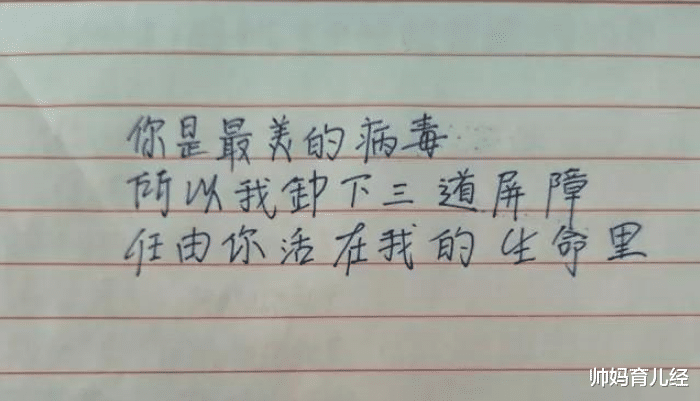 你是最美的病毒
所以我卸下三道屏障
任由你活在我的生命里
帅妈育儿经